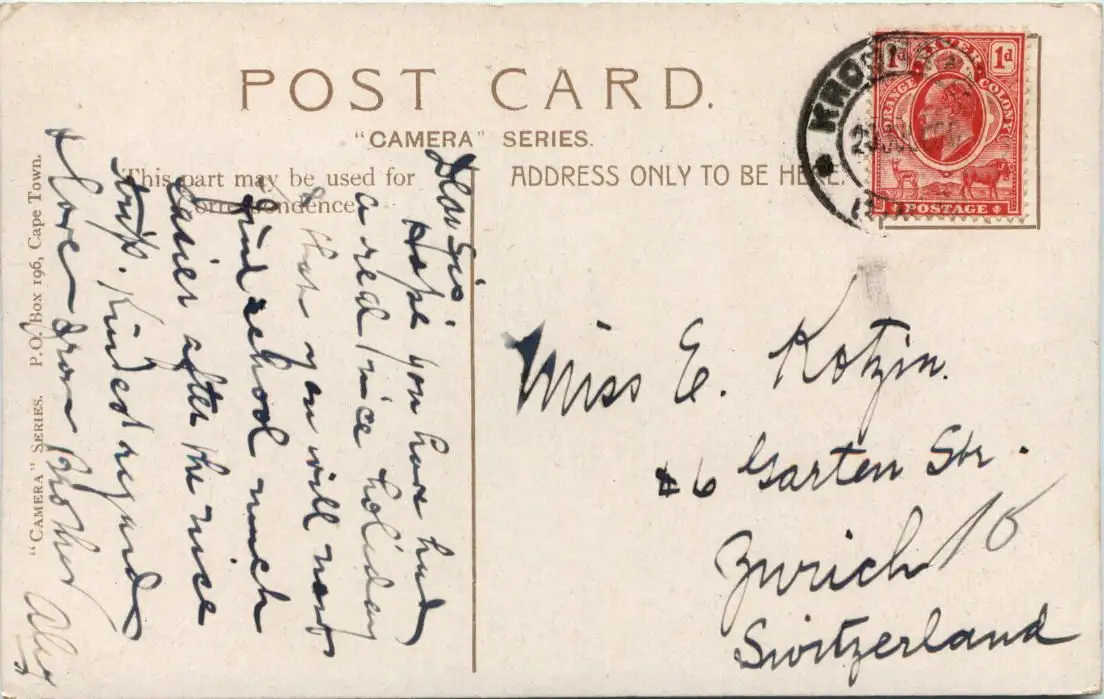 POST CARD.
"CAMERA" SERIES.
This part may be used for
Correspondence
ADDRESS ONLY TO BE HERE.
"CAMERA" SERIES. P.O. Box 196, Cape Town.
1d 1d
ORANGE RIVER COLONY
POSTAGE
Dear Sis.
Hope you have had
a real nice holiday
& that you will not
find school much
easier after the nice
trip. Kindest regards
& Love from Brother
Miss E. Kotzin.
46 Garten Str.
Zurich
Switzerland